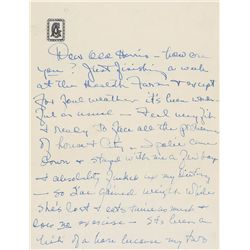 Dear old Harris - how are
you? Just finishing a week
at the Health Farm & except
for foul weather it's been wonder-
ful as usual - Feel very fit
& ready to face all the problems
of house & City. came
down & stayed with me a few days
& absolutely my dieting
- so I've gained weight while
she's lost & eats twice as much &
less exercise - It's been a
bit of a bore because my two